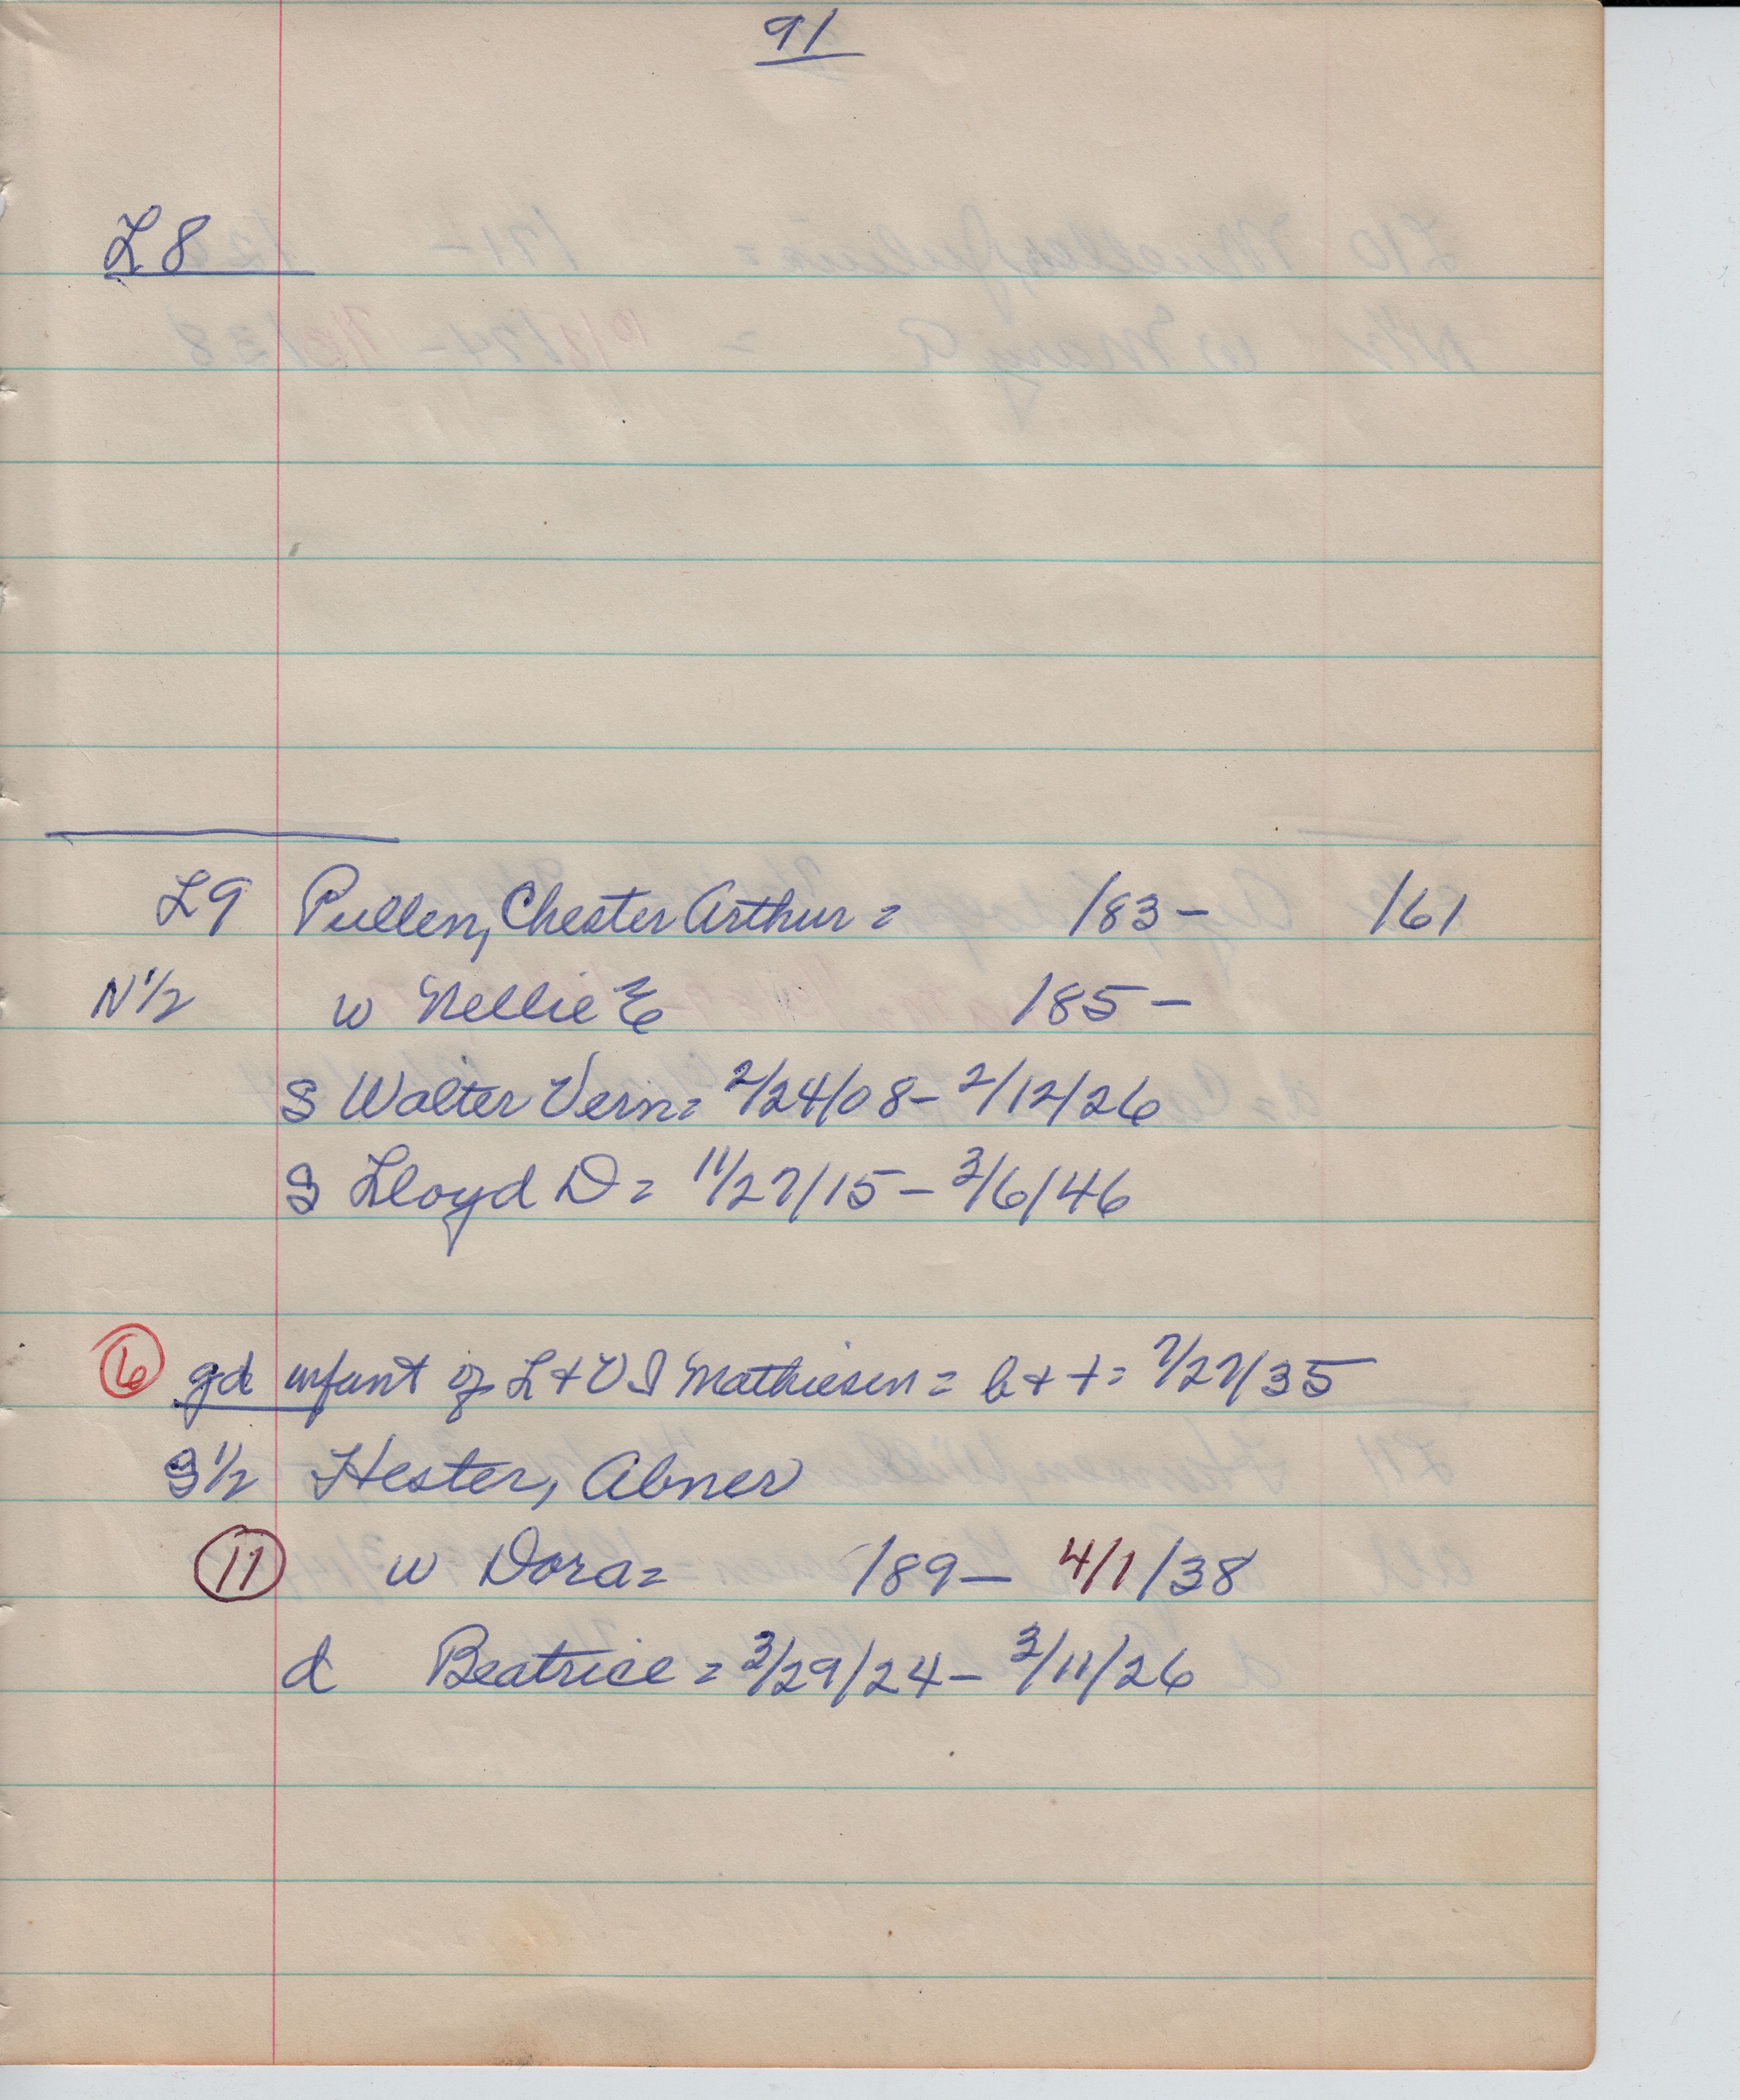 91
L8
L9 Pullen, Chester Arthur = /83 - /61
N 1/2 w Nellie E /85 -
S Walter Vern = 2/24/08 - 2/12/26
S Lloyd D = 11/27/15 - 3/6/46
6 gd infant of L + V I Mathiesen = b + + = 7/27/35
S 1/2 Hester, Abner
11 w Dora = /89 - 4/1/38
d Beatrice = 3/29/24 - 3/11/26